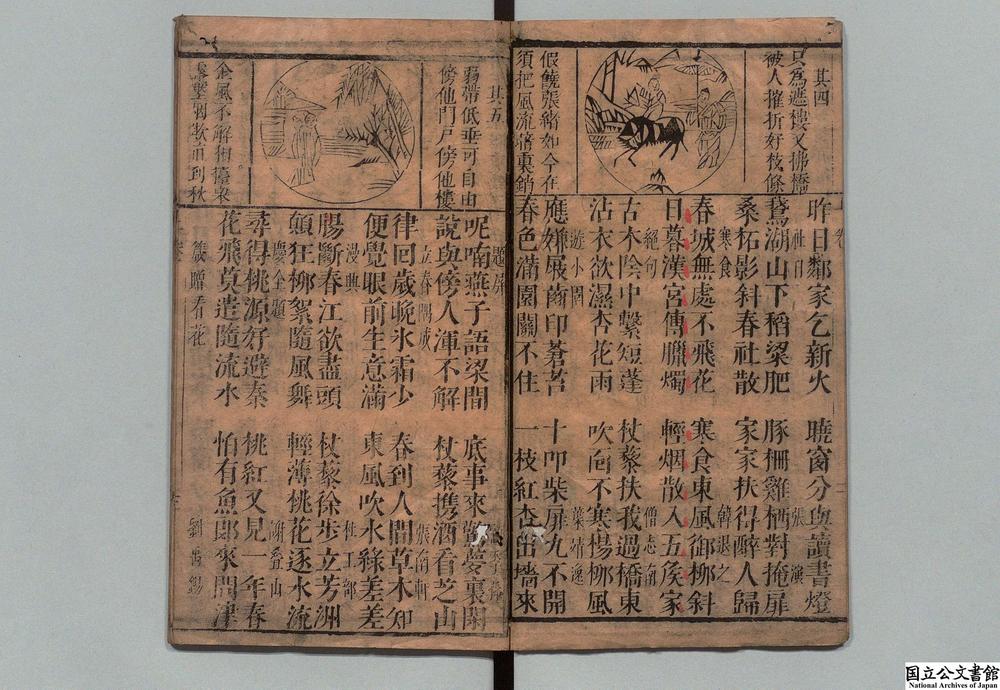 其四
只為遮樓又拂橋
被人摧折好枝條
假饒張緒如今在
須把風流暗裏銷
昨日鄰家乞新火 曉窗分與讀書燈
社日 張演
鵞湖山下稻粱肥 豚柵雞栖對掩扉
桑柘影斜春社散 家家扶得醉人歸
寒食 韓退之
春城無處不飛花 寒食東風御柳斜
日暮漢宮傳臘燭 輕烟散入五矦家
絕句 僧志南
古木陰中繫短蓬 杖藜扶我過橋東
沾衣欲濕杏花雨 吹面不寒楊柳風
遊小園 葉靖逸
應嫌屐齒印蒼苔 十叩柴扉九不開
春色滿園關不住 一枝紅杏出墻來
其五
弱帶低垂可自由
傍他門戶傍他樓
金風不解相擡舉
露壓烟欺直到秋
題屏
呢喃燕子語梁間 底事來驚夢裏閑
說與傍人渾不解 杖藜携酒看芝山
立春偶成 張南軒
律回歲晚氷霜少 春到人間草木知
便覺眼前生意滿 東風吹水綠差差
漫興 杜工部
腸斷春江欲盡頭 杖藜徐步立芳洲
顛狂柳絮隨風舞 輕薄桃花逐水流
慶全題 謝疊山
尋得桃源好避秦 桃紅又見一年春
花飛莫遣隨流水 怕有魚郎來問津
戲贈看花 劉禹錫
国立公文書館
National Archives of Japan